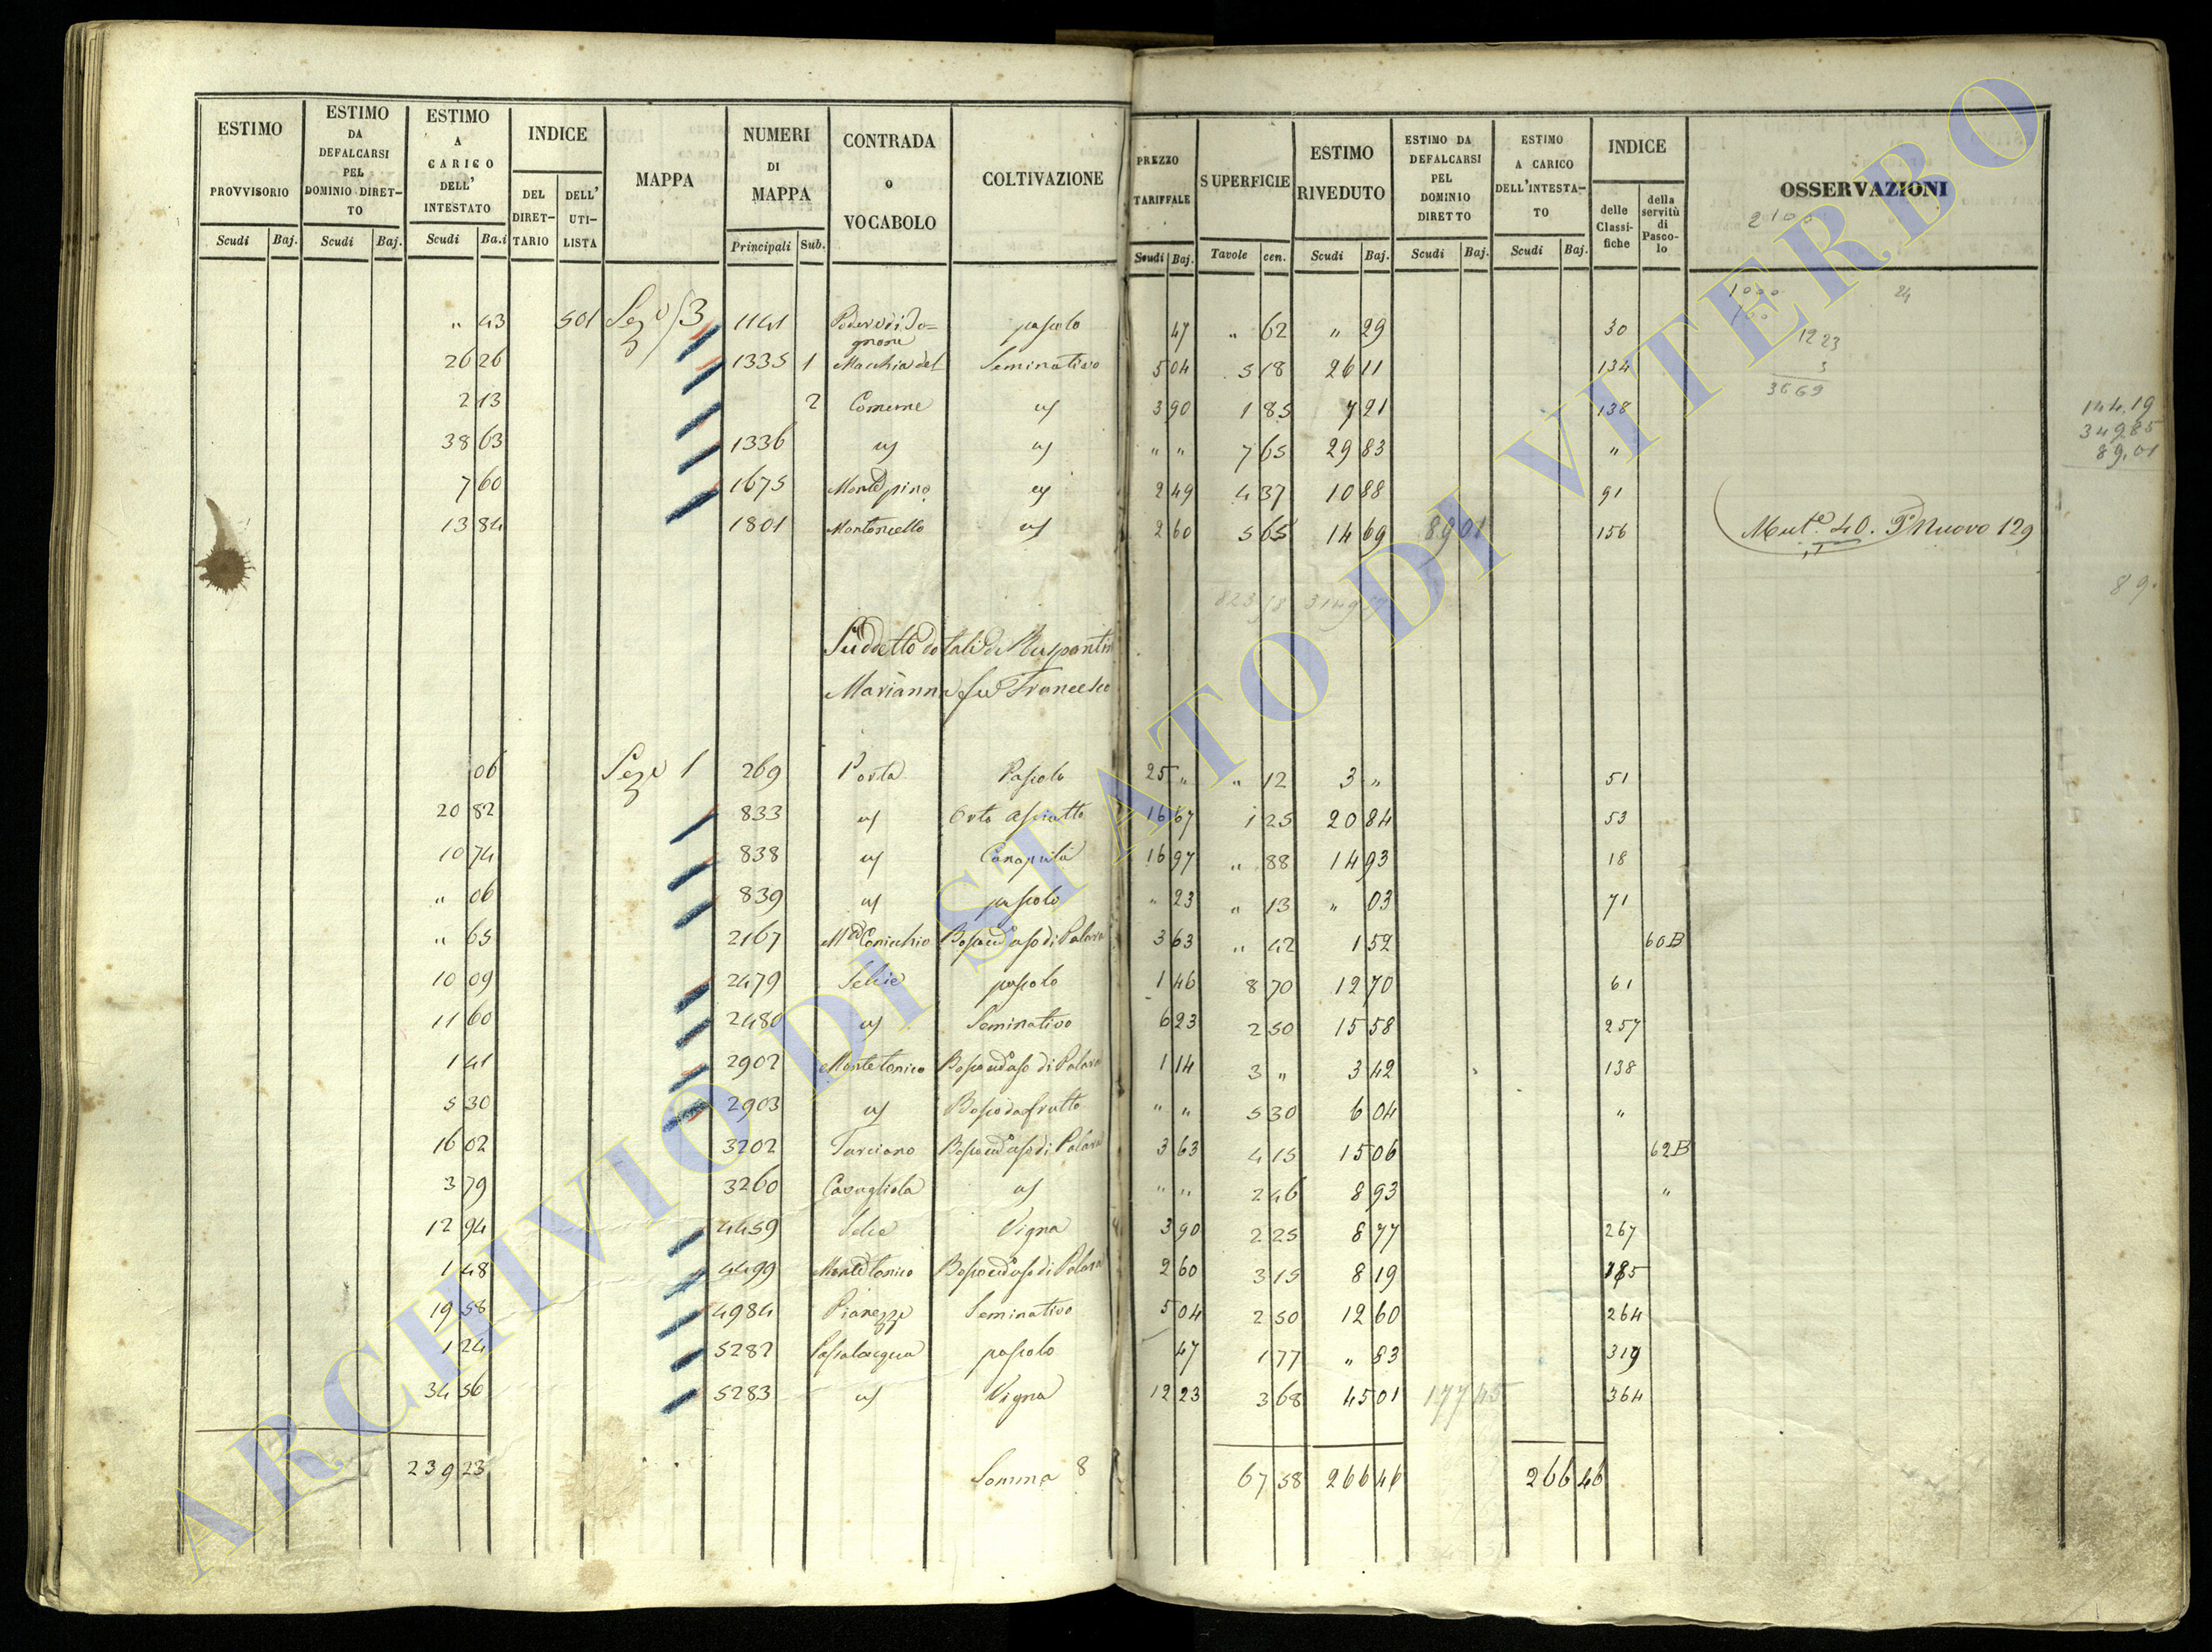 ESTIMO PROVVISORIO Scudi Baj.
ESTIMO DA DEFALCARSI PEL DOMINIO DIRET-TO Scudi Baj.
ESTIMO A CARICO DELL' INTESTATO Scudi Ba.i
INDICE DEL DIRET-TARIO DELL' UTI-LISTA
MAPPA
NUMERI DI MAPPA Principali Sub.
CONTRADA o VOCABOLO
COLTIVAZIONE
PREZZO TARIFFALE Scudi Baj.
SUPERFICIE Tavole cen.
ESTIMO RIVEDUTO Scudi Baj.
ESTIMO DA DEFALCARSI PEL DOMINIO DIRETTO Scudi Baj.
ESTIMO A CARICO DELL'INTESTA-TO Scudi Baj.
INDICE delle Classi-fiche della servitù di Pasco-lo
OSSERVAZIONI
2100
1000 24
100
1223
3
3669
" 43 501 Sez.e 3 1141 pascolo 47 " 62 " 29 30
26 26 1335 1 Macchia del Seminativo 5 04 5 18 26 11 134
2 13 2 Comune us 3 90 1 85 7 21 138
38 63 1336 us us " " 7 65 29 83 "
7 60 1675 Monte pino us 2 49 4 37 10 88 91
13 84 1801 Montoncello us 2 60 5 65 14 69 89 01 156 Mut.e 40. P.o Nuovo 129
144,19
349,85
89,01
89.
823 3149
Suddetto dotali di Ruspantini
Marianna fu Francesco
06 Sez.e 1 269 Porta Pascolo 25 " " 12 3 " 51
20 82 833 us Orto asciutto 16 67 1 25 20 84 53
10 74 838 us Canapula 16 97 " 88 14 93 18
" 06 839 us pascolo " 23 " 13 " 03 71
" 65 2167 Bosco ed uso di Palara 3 63 " 42 1 52 60B
10 09 2479 Selcie pascolo 1 46 8 70 12 70 61
11 60 2480 us Seminativo 6 23 2 50 15 58 257
1 41 2902 Montetonico Bosco ed uso di Palara 1 14 3 " 3 42 138
5 30 2903 us Bosco da frutto " " 5 30 6 04 "
16 02 3202 Turciano Bosco ed uso di Palara 3 63 4 15 15 06 62B
3 79 3260 Cavugliola us " " 2 46 8 93 "
12 94 4459 Selce Vigna 3 90 2 25 8 77 267
1 48 4499 Monte tonico Bosco ed uso di Palara 2 60 3 15 8 19 185
19 58 4984 Pianezze Seminativo 5 04 2 50 12 60 264
1 24 5282 Passalacqua pascolo 47 1 77 " 83 319
34 56 5283 us Vigna 12 23 3 68 45 01 177 45 364
239 23 Somma 8 67 58 266 46 266 46
ARCHIVIO DI STATO DI VITERBO